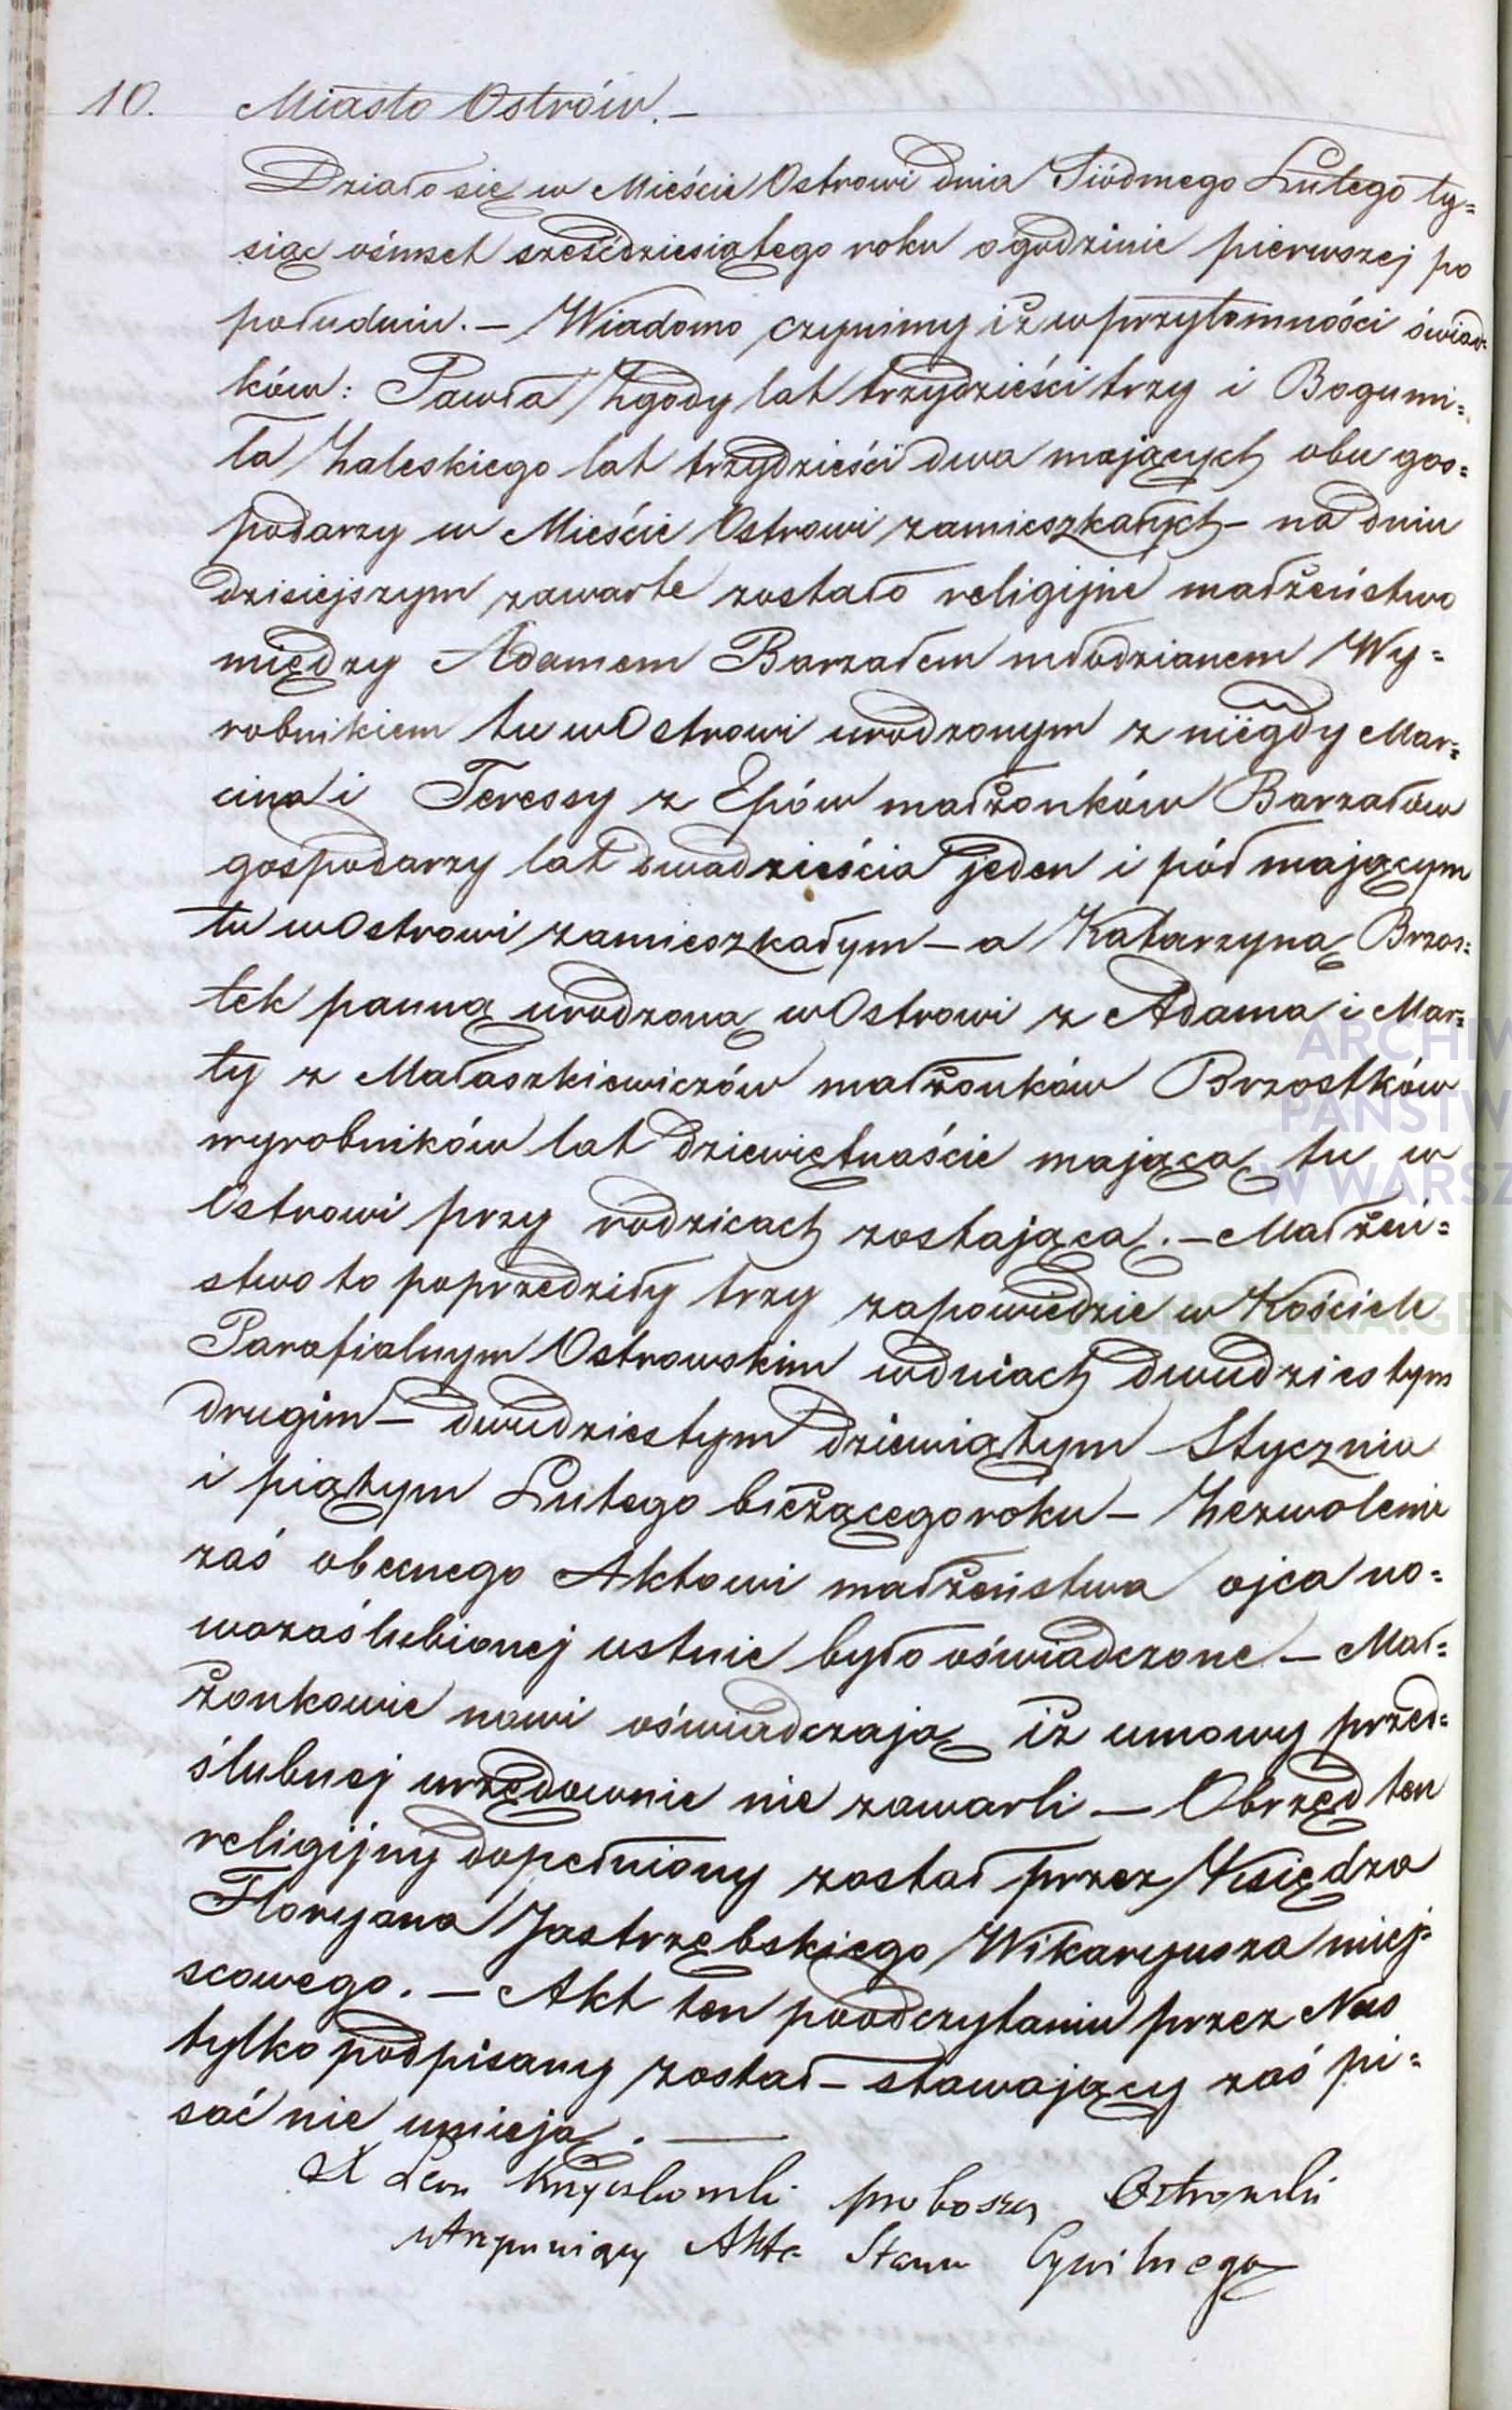 10. Miasto Ostrów. –
Działo się w Mieście Ostrowi dnia Siódmego Lutego ty=
siąc ośmset sześćdziesiątego roku o godzinie pierwszej po
południu. – Wiadomo czynimy iż w przytomności świad=
ków: Pawła Zgody lat trzydzieści trzy i Bogumi=
ła Zaleskiego lat trzydzieści dwa mających obu gos=
podarzy w Mieście Ostrowi zamieszkałych – na dniu
dzisiejszym zawarte zostało religijne małżeństwo
między Adamem Barzałem młodzianem Wy=
robnikiem tu w Ostrowi urodzonym z niegdy Mar=
cina i Teressy z Epów małżonków Barzałów
gospodarzy lat dwadzieścia jeden i pół mającym
tu w Ostrowi zamieszkałym – a Katarzyną Brzos=
tek panną urodzoną w Ostrowi z Adama i Mar=
ty z Małaszkiewiczów małżonków Brzostków
wyrobników lat dziewiętnaście mającą tu w
Ostrowi przy rodzicach zostającą. – Małżeń=
stwo to poprzedziły trzy zapowiedzie w Kościele
Parafialnym Ostrowskim w dniach dwudziestym
drugim – dwudziestym dziewiątym Stycznia
i piątym Lutego bieżącego roku – Zezwolenie
zaś obecnego Aktowi małżeństwa ojca no=
wozaślubionej ustnie było oświadczone – Mał=
żonkowie nowi oświadczają iż umowy przed=
ślubnej urzędownie nie zawarli – Obrzęd ten
religijny dopełniony został przez Księdza
Floryana Jastrzębskiego Wikaryusza miej=
scowego. – Akt ten po odczytaniu przez Nas
tylko podpisany został – stawający zaś pi=
sać nie umieją. –
X Leon proboszcz Ostrowski
utrzymuiący Akta Stanu Cywilnego
ARCHIW
PAŃSTW
W WARSZ
SKANOTEKA.GEN